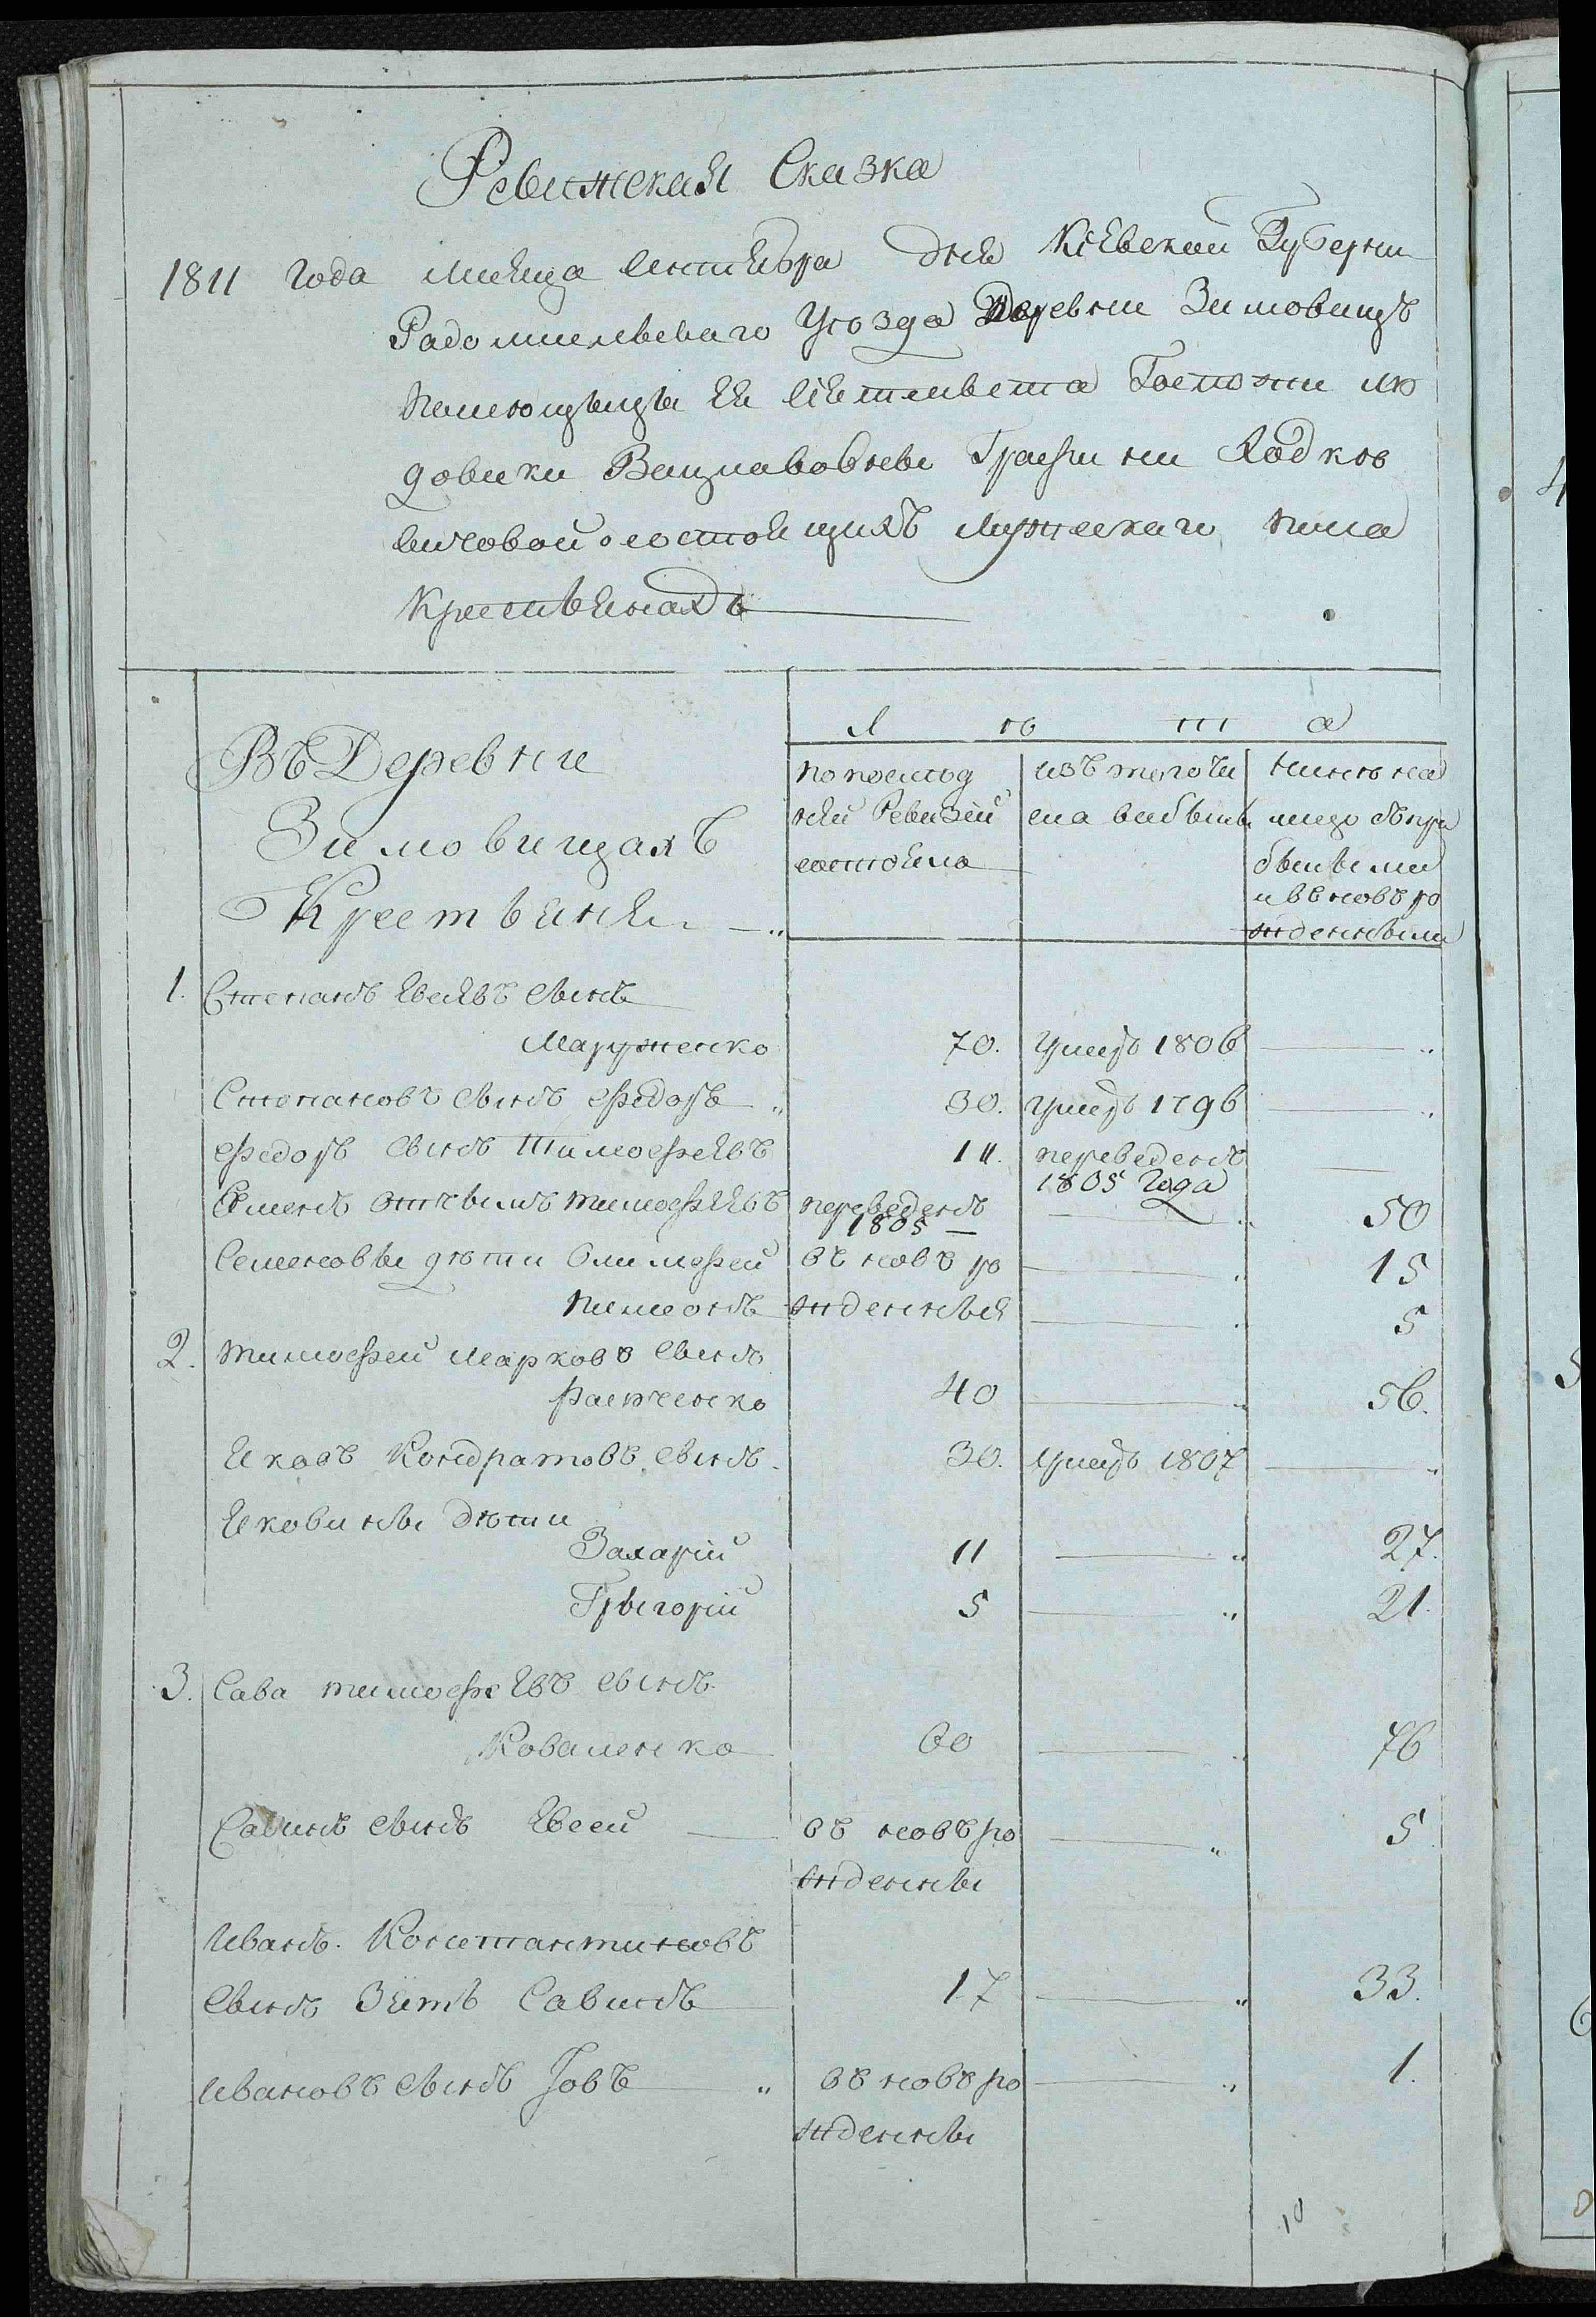 Ревижская Сказка
1811 года месяца сентября дня Кіевской Губернии
Радомишльскаго Уѣзда Деревни Зимовищъ
помѣщицы Ея Сіятельства Госпожи Лю
довики Вацлавовны Графини Ходкѣ
вичовой о состоящихъ мужескаго пола
крестьянахъ
Въ Деревне
Зимовищахъ
Крестьяня
Л ѣ т а
по послѣд
ней Ревизіи
состояло
изъ того чи
сла выбыли
ныне на
лицо съ при
былыми
и въ новъ ро
жденными
1. Степанъ Евсѣевъ сынъ
Маруженко 70. умеръ 1806
Степановъ сынъ Федоръ 30. умеръ 1796
Федоръ сынъ Тимофеевъ 11. переведенъ
1805 года
Семенъ Отчымъ Тимофеевъ переведенъ
1805 50
Семеновы дѣти Олимофей въ новъ ро 15
Пимонъ жденныя 5
2. Тимофей Марковъ сынъ
40 56.
Яковъ Кондратовъ сынъ 30. умеръ 1807
Яковины дѣти
Захарій 11 27.
Грыгорій 5 21.
3. Сава Тимофеевъ сынъ
Коваленко 60 76
Савинъ сынъ Евсей въ новъ ро 5
жденны
Иванъ Константиновъ
сынъ Зять Савинъ 17 33.
Ивановъ сынъ Іовъ въ новъ ро 1.
жденны
10